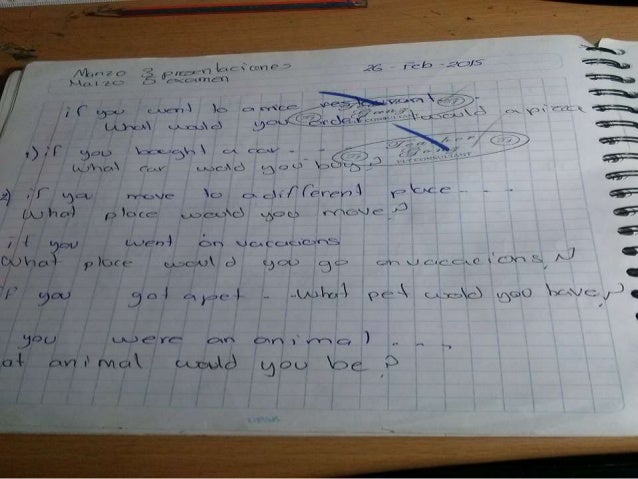 Marzo 3 presentaciones 26 - Feb - 2015
Marzo 5 examen
if you went to a nice restaurant -
What would you order would a pieza
1) if you bought a car - - -
What car would you buy?
2) if you move to a different place - - - -
What place would you move?
if you went on vacacions
What place would you go on vacacions?
if you got a pet - - What pet would you have?
you were an animal - - - -
at animal would you be?